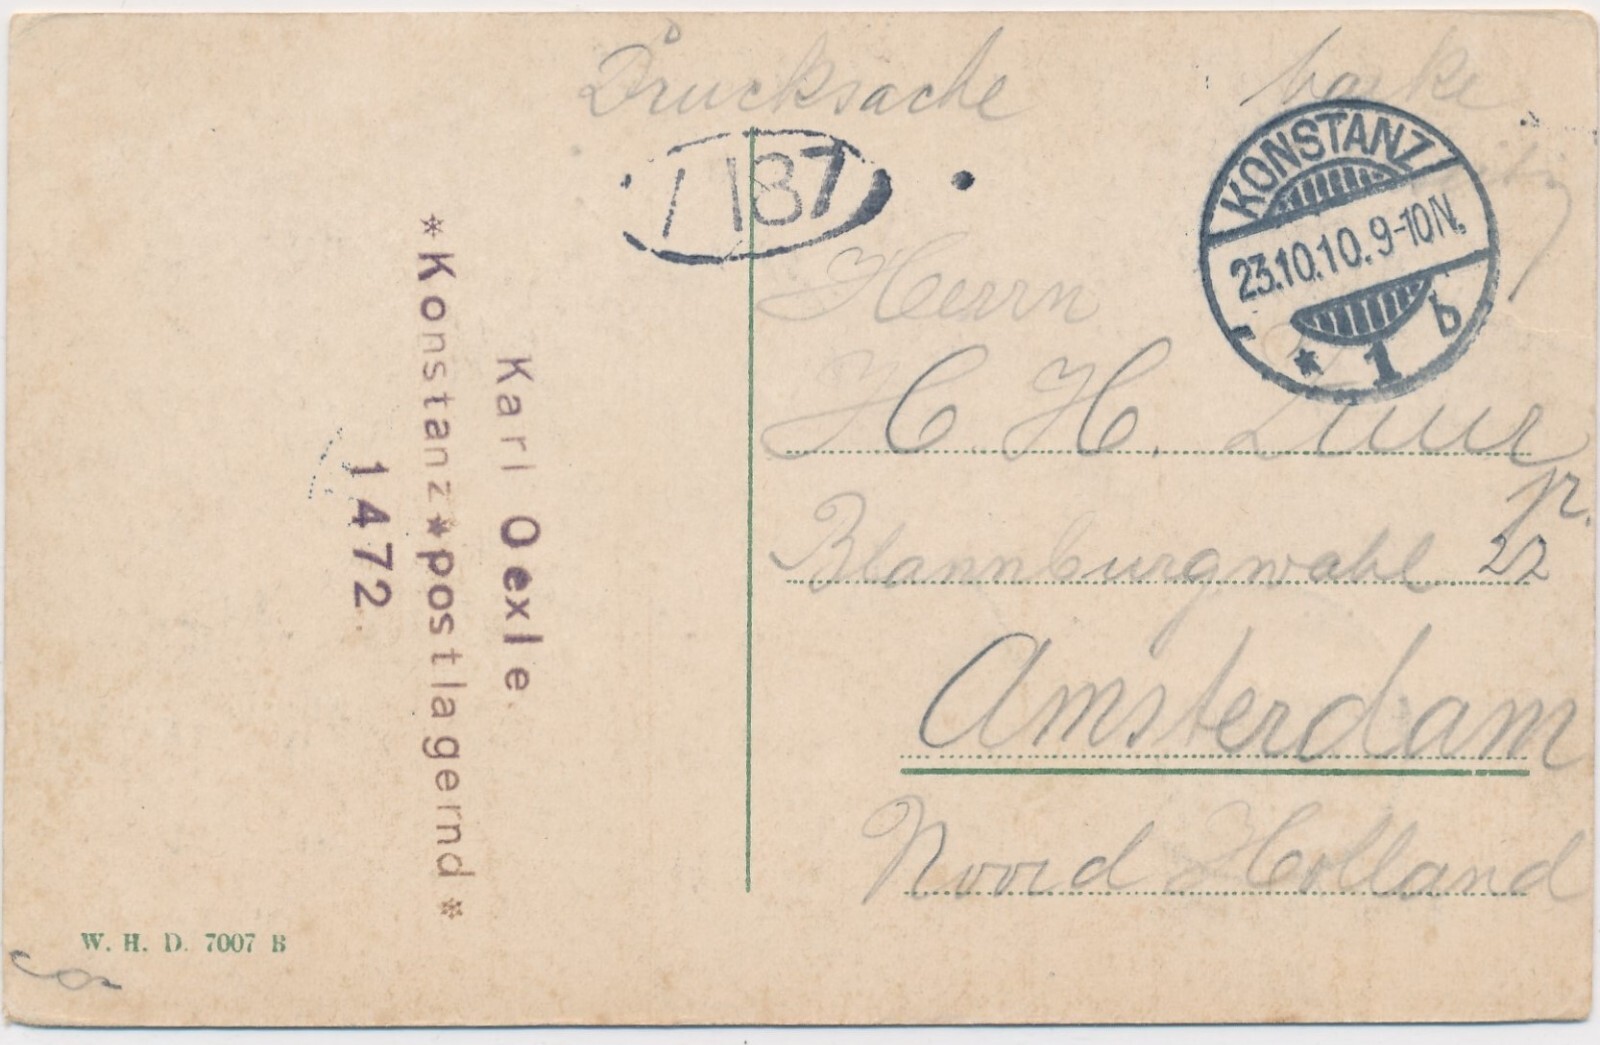 Drucksache
KONSTANZ
23.10.10. 9-10N.
* 1 b
187
Herrn
H. H. Zuur
jr.
Blannburgwahl 22
Amsterdam
Noord Holland
Karl Oexle.
*Konstanz*postlagernd*
1472.
W. H. D. 7007 B